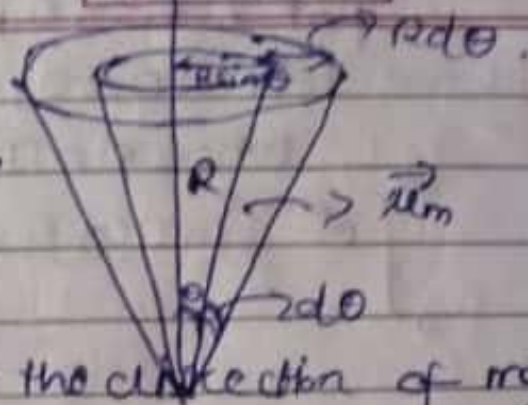 Rdθ
R sinθ
R
μ⃗m
θ
dθ
the direction of mo